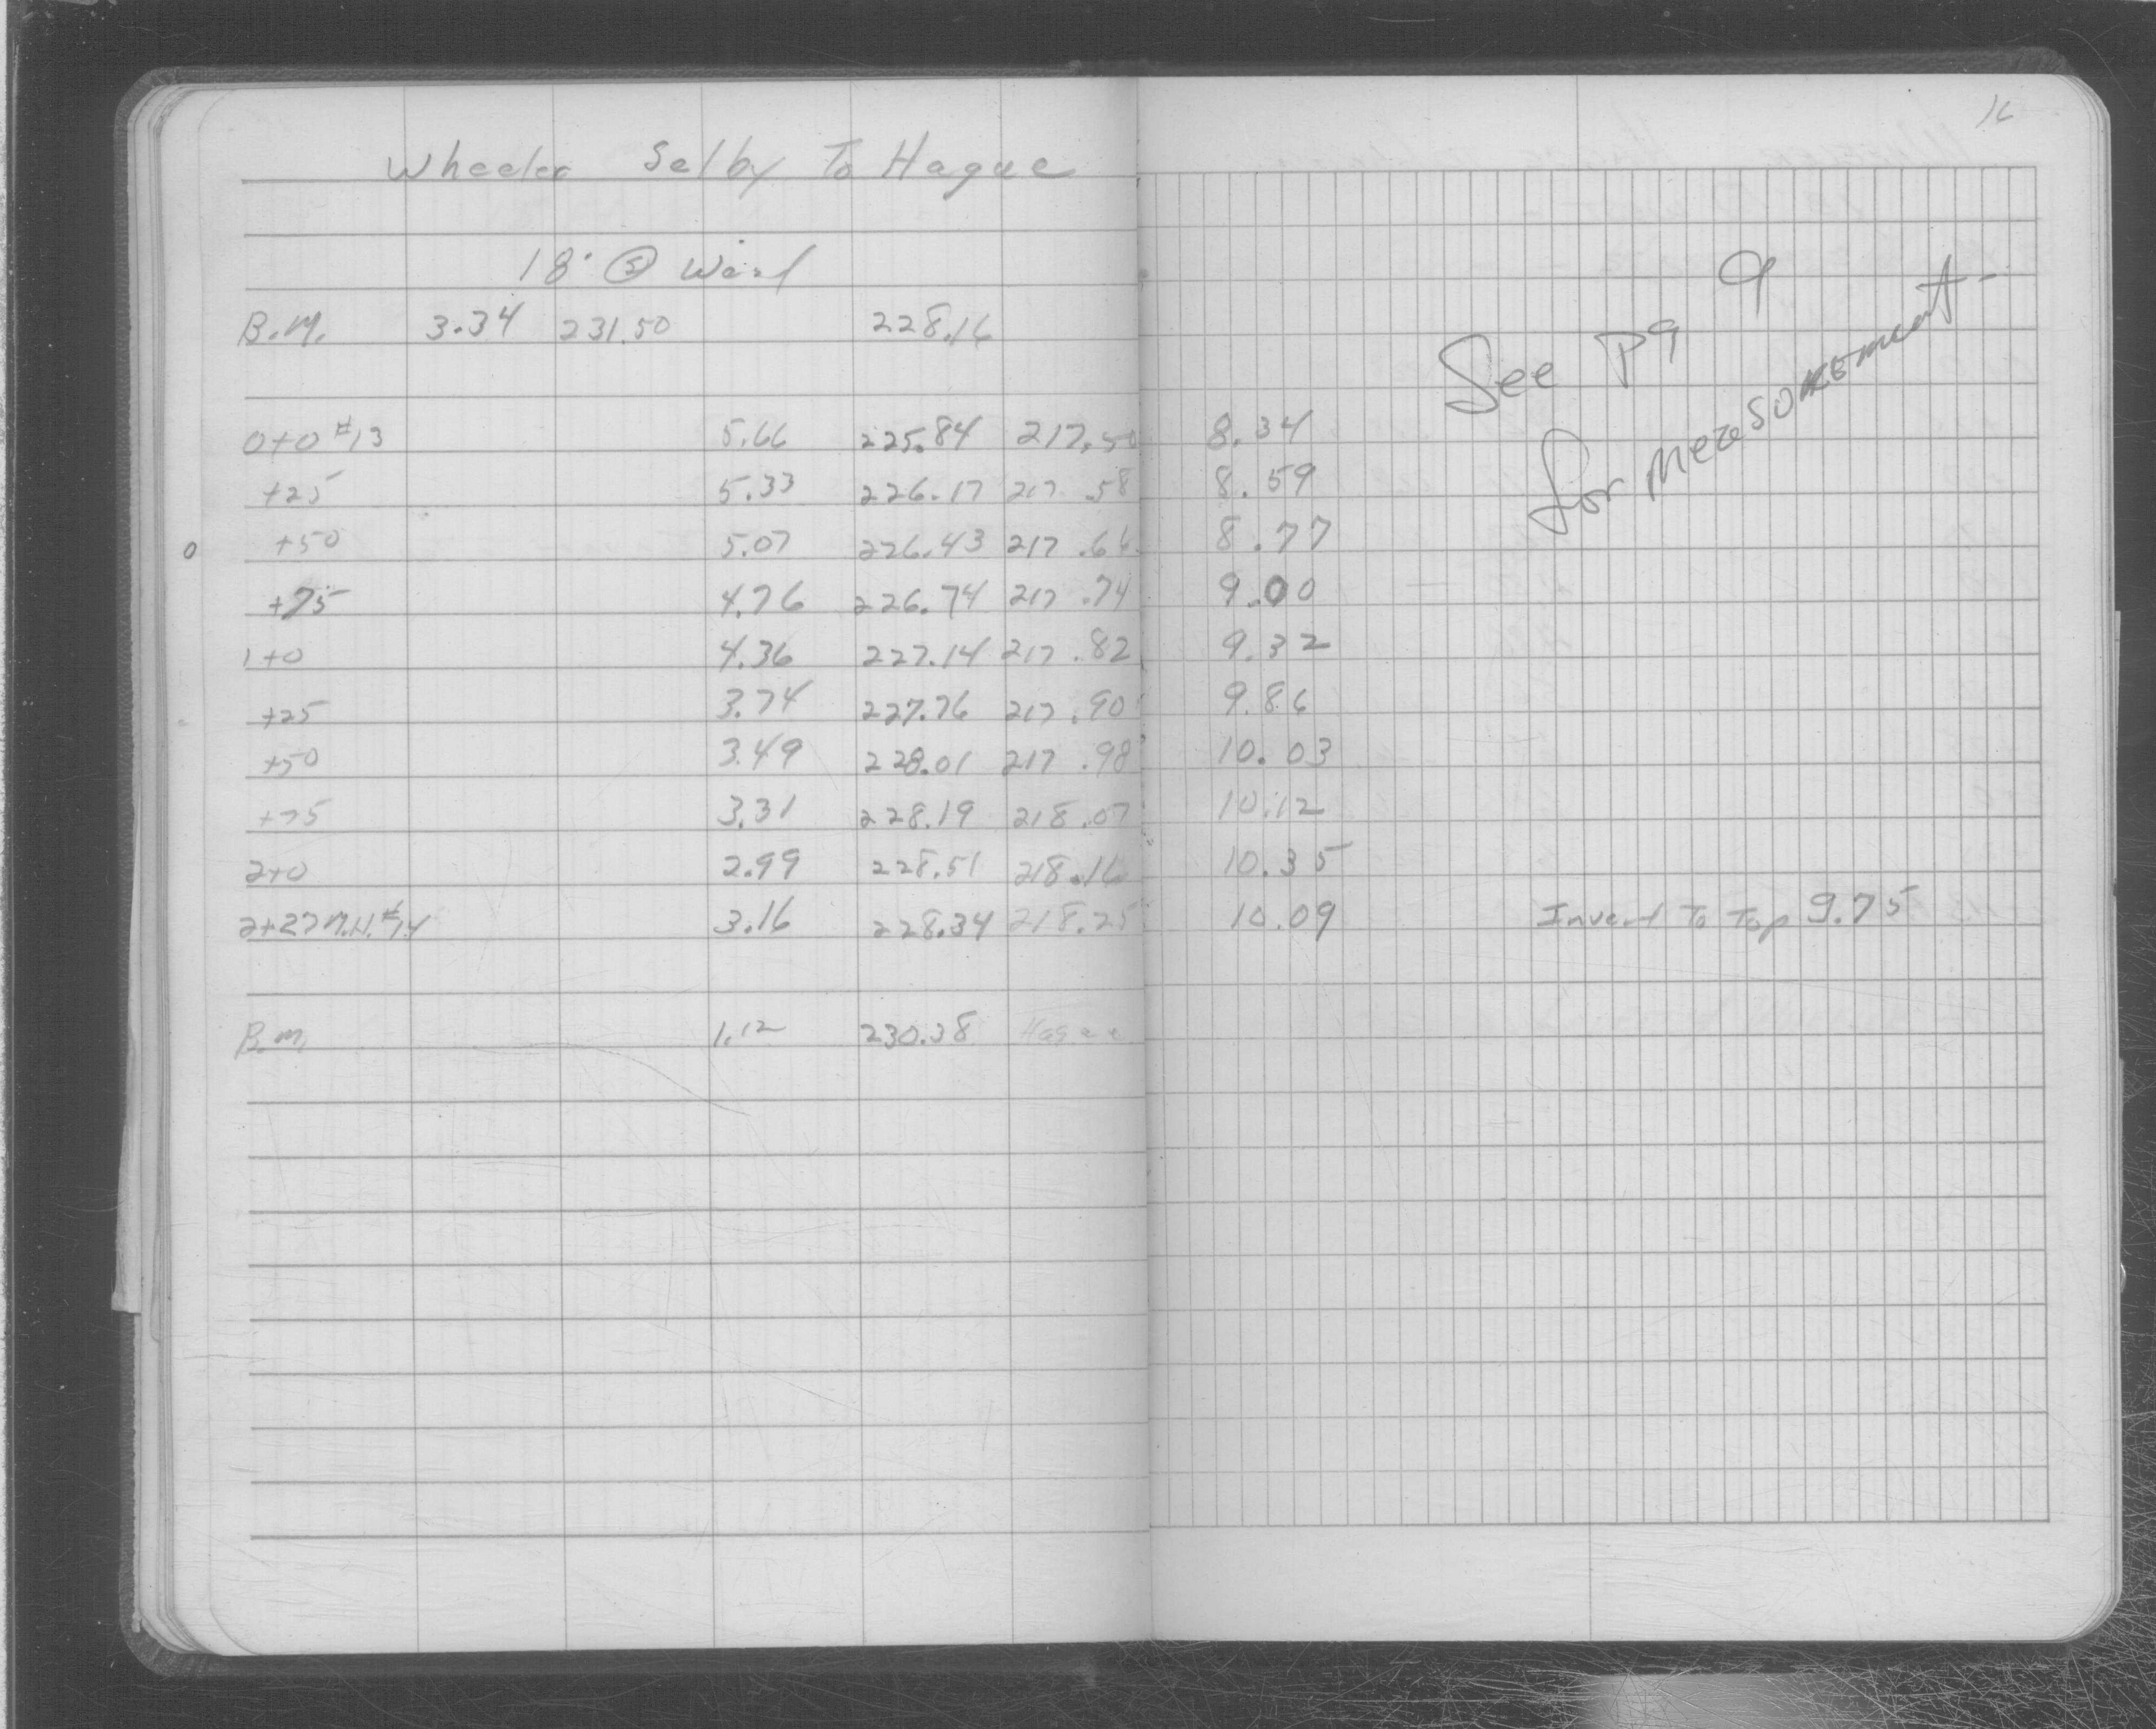 16
Wheeler Selby To Hague
18' Ⓢ West
B.M. 3.34 231.50 228.16
See Pg 9
for Meresurement-
0+0 #13 5.66 225.84 217.50 8.34
+25 5.33 226.17 217.58 8.59
+50 5.07 226.43 217.66 8.77
+75 4.76 226.74 217.74 9.00
1+0 4.36 227.14 217.82 9.32
+25 3.74 227.76 217.90 9.86
+50 3.49 228.01 217.98 10.03
+75 3.31 228.19 218.07 10.12
2+0 2.99 228.51 218.16 10.35
2+27 M.H. #14 3.16 228.34 218.25 10.09 Invert To Top 9.75
B.M. 1.12 230.38 Hague